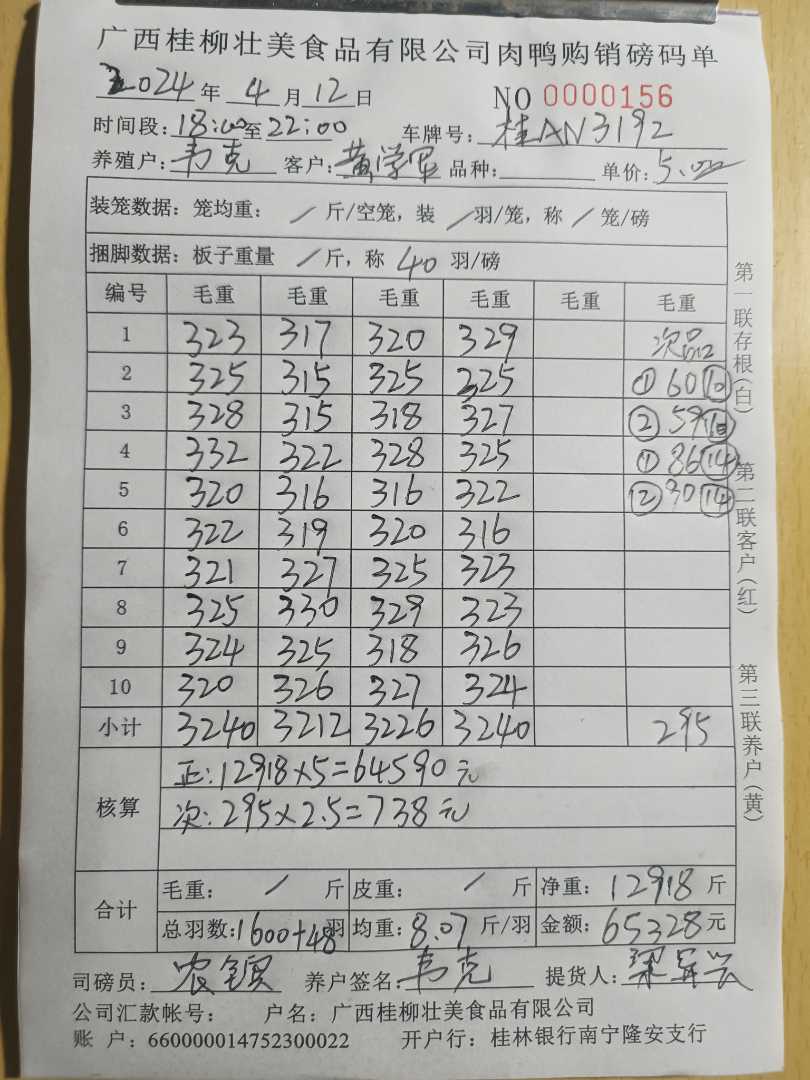 广西桂柳壮美食品有限公司肉鸭购销磅码单
2024年 4月12日 NO 0000156
时间段:18:00至22:00 车牌号:桂AN3192
养殖户:韦克 客户:黄学军 品种: 单价:5.00
装笼数据:笼均重: / 斤/空笼,装 / 羽/笼,称 / 笼/磅
捆脚数据:板子重量 / 斤,称 40 羽/磅
编号 毛重 毛重 毛重 毛重 毛重 毛重
1 323 317 320 329 次品
2 325 315 325 325 ① 60 ⑩
3 328 315 318 327 ② 59 ⑩
4 332 322 328 325 ① 86 ⑭
5 320 316 316 322 ② 90 ⑭
6 322 319 320 316
7 321 327 325 323
8 325 330 329 323
9 324 325 318 326
10 320 326 327 324
小计 3240 3212 3226 3240 295
核算
正:12918×5=64590元
次:295×2.5=738元
合计
毛重: / 斤 皮重: / 斤 净重:12918斤
总羽数:1600+48羽 均重:8.07斤/羽 金额:65328元
司磅员: 养户签名:韦克 提货人:
公司汇款帐号: 户名:广西桂柳壮美食品有限公司
账 户:660000014752300022 开户行:桂林银行南宁隆安支行
第一联存根(白)
第二联客户(红)
第三联养户(黄)